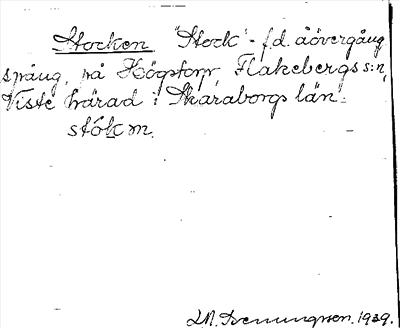 Stocken "Stock" - f.d. åövergång
spång, på Högstorp, Flakebergs s:n,
Viste härad i Skaraborgs län.
stök m.
1939.